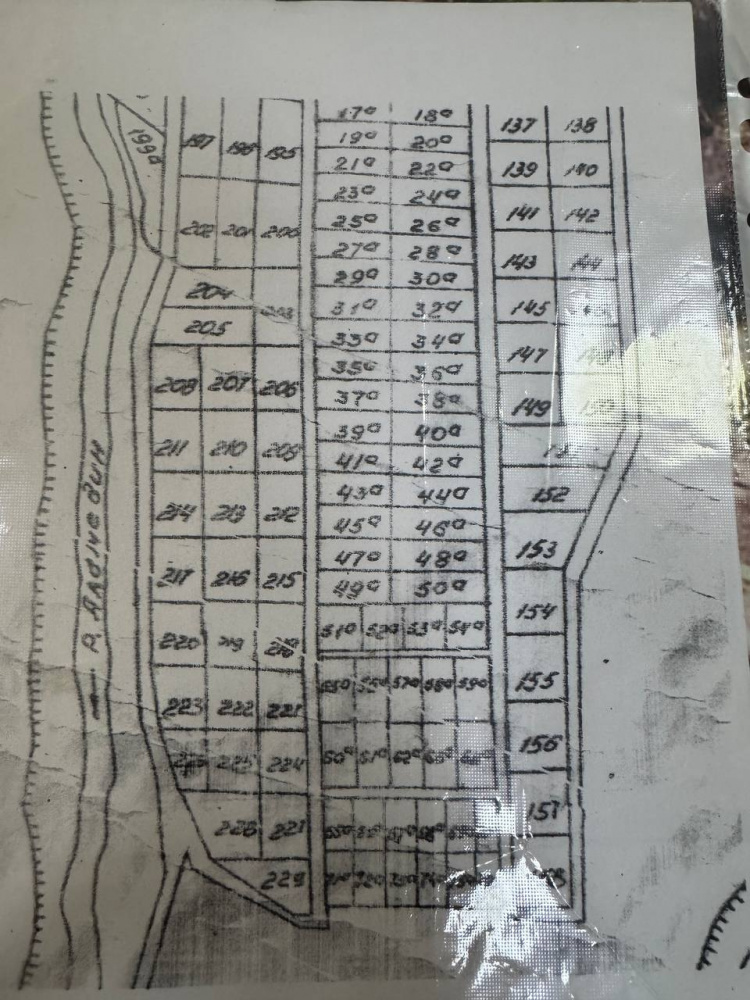 17а 18а 137 138
199а 197 198 195 19а 20а
21а 22а 139 140
23а 24а
202 201 200 25а 26а 141 142
27а 28а 143 144
204 29а 30а
203 31а 32а 145
205 33а 34а
35а 36а 147
208 207 206 37а 38а 149 150
39а 40а
211 210 209 41а 42а
43а 44а 152
214 213 212 45а 46а
47а 48а 153
217 216 215 49а 50а
51а 52а 53а 54а 154
220 219
57а 58а 59а 155
223 222 221
225 224 60а 61а 62а 156
228 227 157
229
Р. АЛОМЕДИН